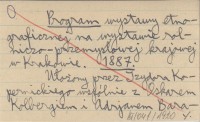 Program wystawy etno-
graficznej na wystawie rol-
niczo-przemysłowej krajowej
w Krakowie. 1887
Ułożony przez Izydora Ko-
pernickiego wspólnie z Oskarem
Kolbergiem i Adryanem Bara-